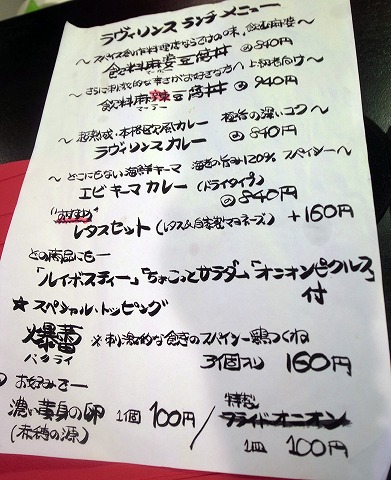 ラヴィリンス ランチメニュー
～スパイス創作料理店ならではの味、飲める麻婆～
飲む料麻婆豆腐丼 ⊘840円
マーボー
～さらに刺激的な辛さがお好きな方へ 上級者向け～
飲料麻辣豆腐丼 ⊘940円
マーラー
～超熟成・本格欧風カレー 極旨の深いコク～
ラヴィリンスカレー ⊘840円
～どこにもない海鮮キーマ 海老の旨み120% スパイシー～
エビキーマカレー (ドライタイプ) ⊘840円
"おすすめ"
レタスセット (レタス&自家製マヨネーズ) +160円
どの商品にも―
「ルイボスティー」「ちょこっとサラダ」「オニオンピクルス」付
★スペシャル・トッピング
爆蕾 ※刺激的な食感のスパイシー鶏つくね
バクライ 3個入り 160円
お好みで―
濃い黄身の卵 1個 100円 / 特製 フライドオニオン
(赤穂の源) 1皿 100円